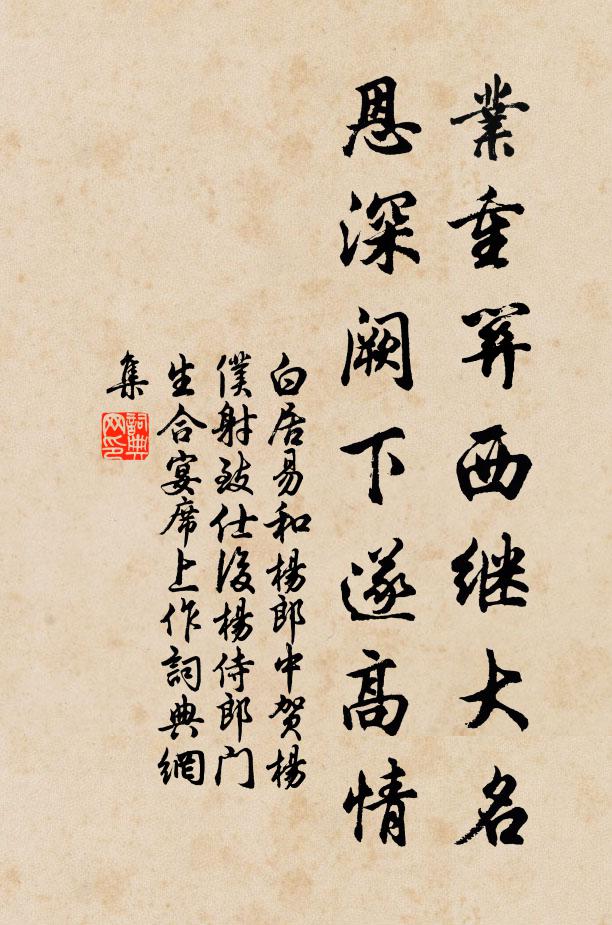 業重關西継大名
恩深闕下遂高情
白居易和楊郎中贺楊
僕射致仕後楊侍郎门
生合宴席上作詞典網
集
詞典网印